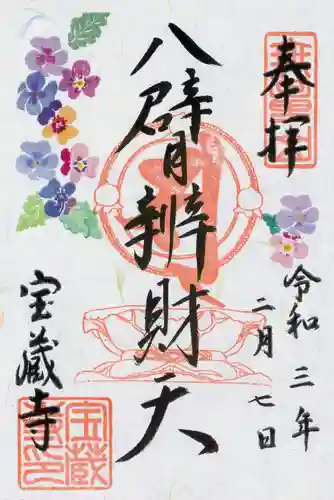 奉拝
令和三年
二月七日
八臂辨財天
宝蔵寺